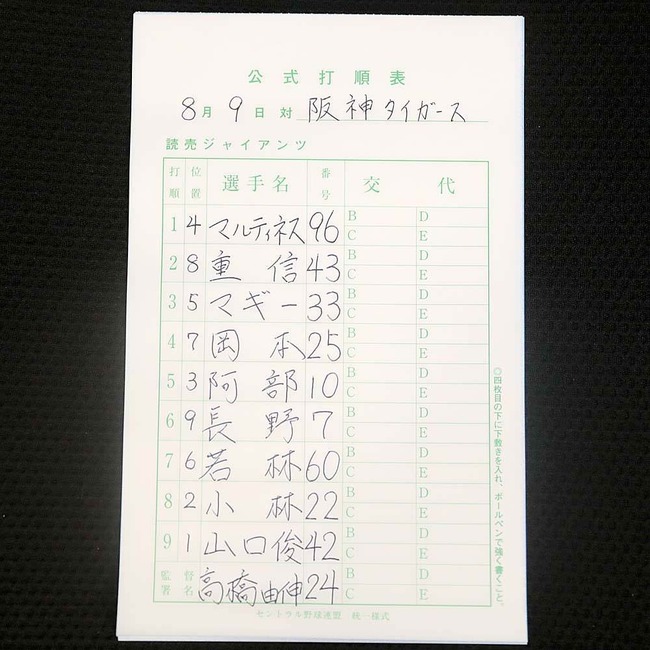 公式打順表
8月9日 対 阪神タイガース
読売ジャイアンツ
打順 位置 選手名 番号 交代
1 4 マルティネス 96 B D
C E
2 8 重信 43 B D
C E
3 5 マギー 33 B D
C E
4 7 岡本 25 B D
C E
5 3 阿部 10 B D
C E
6 9 長野 7 B D
C E
7 6 若林 60 B D
C E
8 2 小林 22 B D
C E
9 1 山口俊 42 B D
C E
監督署名 高橋由伸 24 B D
C E
セントラル野球連盟 統一様式
○四枚目の下に下敷きを入れ、ボールペンで強く書くこと。